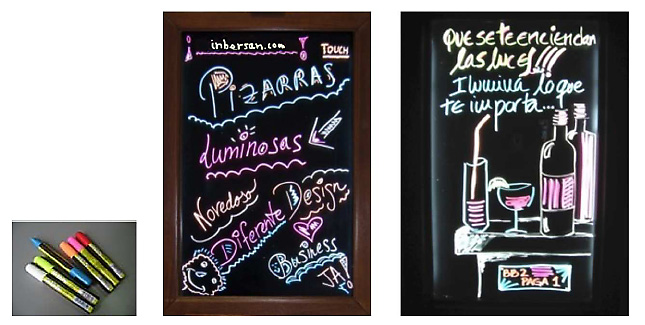 inbersan.com
TOUCH
PIZARRAS
Luminosas
Novedoso
Design
Diferente
Business
JA!
Que se te enciendan
las luces!!!
Ilumina lo que
te importa...
BB2
PAGA 1